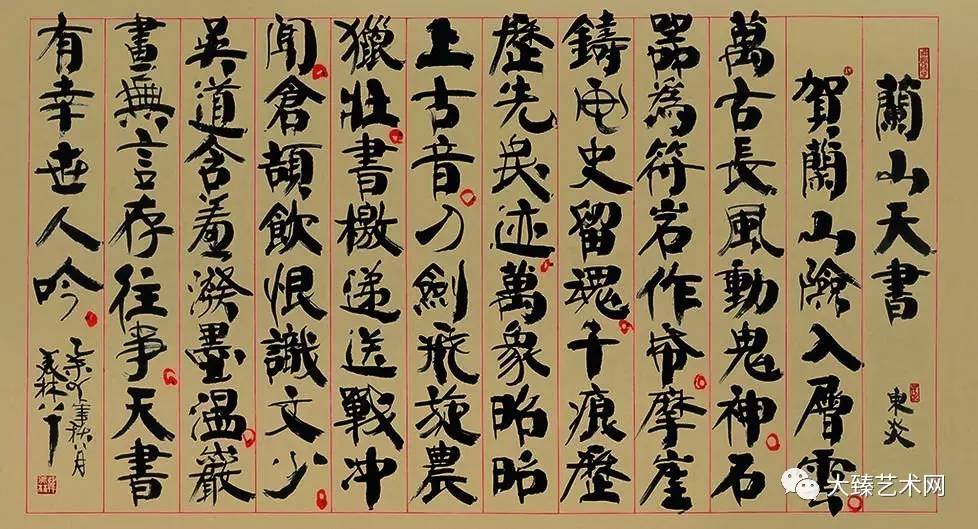 蘭山天書
東炎
賀蘭山險入層雲
萬古長風動鬼神石
器為符岩作帋摩崖
鑄史留魂千痕歷
歷先民迹萬象昭昭
上古音刀劍飛旋農
獵壯書檄遞送戰冲
聞倉頡飲恨識文少
吳道含羞潑墨溫巖
畫無言存往事天書
有幸世人吟
秋八月
大臻艺术网